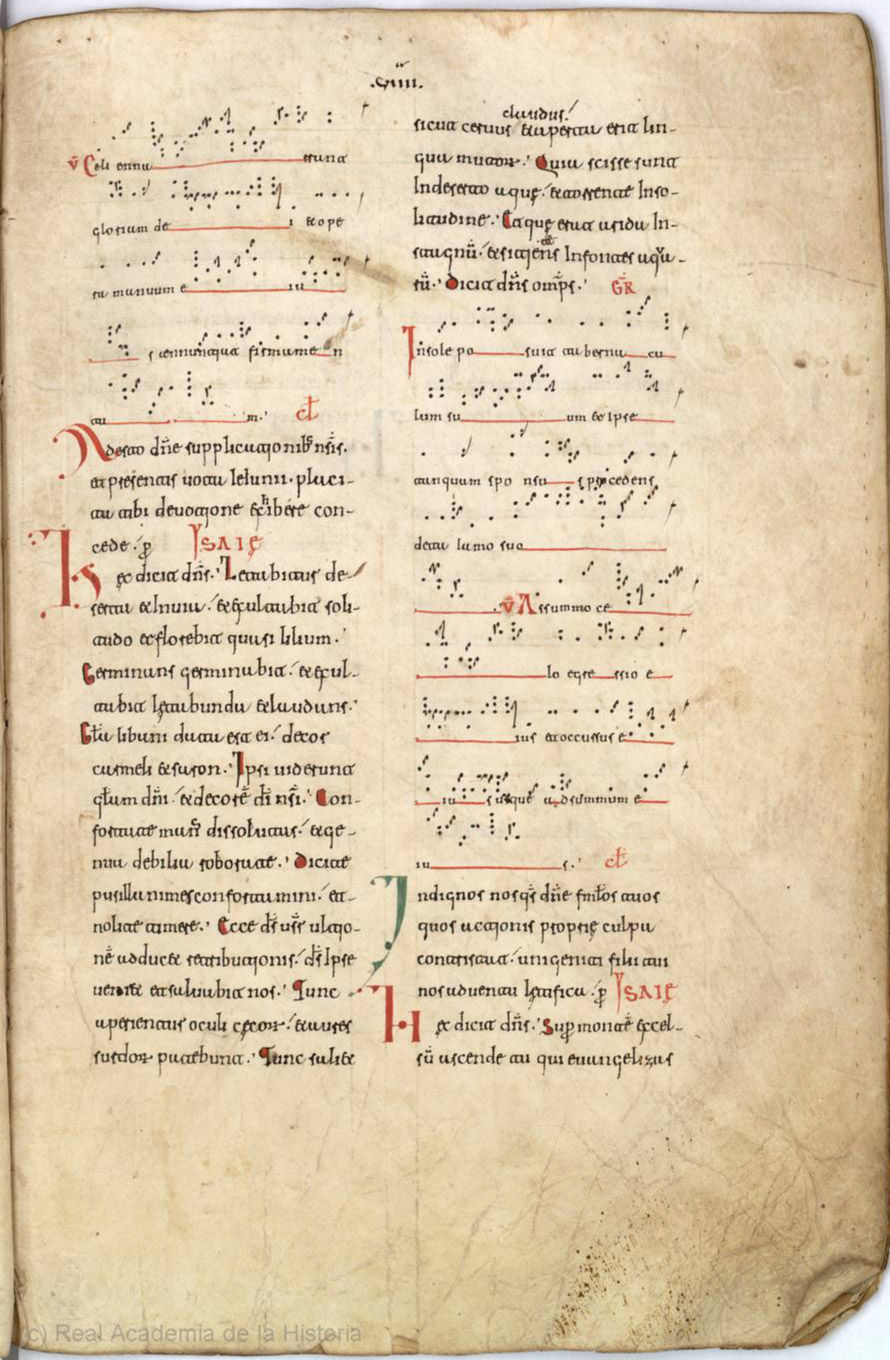 .CIIII.
v̄ Celi ennа erunt
gloriam de i & ope
ra manuum e iu
s annunciat firmame n
tu m. cł
Adesto dn̄e supplicacionib; nr̄is.
et presentis uotiu Ieiunii. placi-
ta tibi deuocione exhibere con-
cede. ꝑ YSAIĘ
Hęc dicit dn̄s. Letabitur de-
serta & Inuia. & exultabit soli-
tudo & florebit quasi lilium.
Germinans germinabit. & exul-
tabit lętabunda & laudans.
Gła libani data est ei. decor
carmeli & saron. Ipsi uiderunt
głam dn̄i. & decorē dī nr̄i. Con-
fortate man̄ dissolutas. & ge-
nua debilia roborate. Dicite
pusillanimes confortamini. et
nolite timere. Ecce ds̄ ur̄s ulcio-
nē adduc& retribucionis. ds̄ Ipse
ueniet et saluabit nos. Tunc
aperientur oculi cęcoꝝ. & aures
surdoꝝ patebunt. Tunc sali&
claudus.
sicut ceruus & aperta erit lin-
gua mutoꝝ. Quia scisse sunt
In deserto aquę. & torrentes In so-
litudine. Et aquę erat arida In-
stagnū. & siciens In fontes aqua-
rū. Dicit dn̄s omp̄s. GR̄
In sole po suit tabernа cu
lum su um & ipse
tanquam spo nsu s procedens
detа lamo suo
v̄ A ssummo cę
lo egre ssio e
ius et occursus e
iu s usque ad summum e
iu s. cł
Indignos nos qs̄ dn̄e fmłos tuos
quos accionis proprię culpa
contristat. unigeniti filii tui
nos aduentu lętifica. ꝑ YSAIĘ
Hęc dicit dn̄s. Supꝛ montē excel-
sū ascende tu qui euangelizas
(c) Real Academia de la Historia